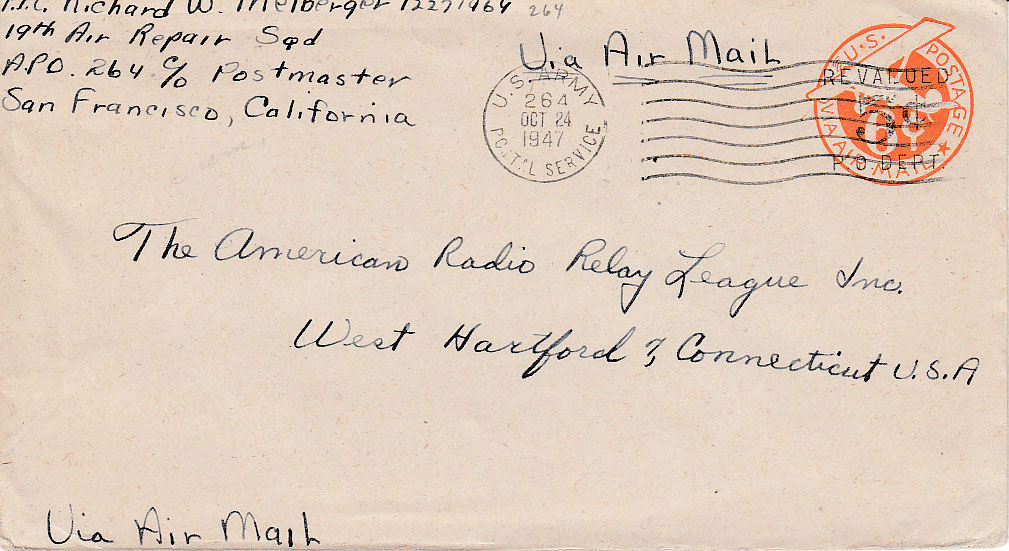 Richard W. Melberger 12271964 264
19th Air Repair Sqd
A.P.O. 264 c/o Postmaster
San Francisco, California
Via Air Mail
U.S. ARMY
264
OCT 24
1947
POSTAL SERVICE
U.S. POSTAGE
REVALUED
5¢
6¢
P.O. DEPT.
VIA AIR MAIL
The American Radio Relay League Inc.
West Hartford 7, Connecticut U.S.A
Via Air Mail